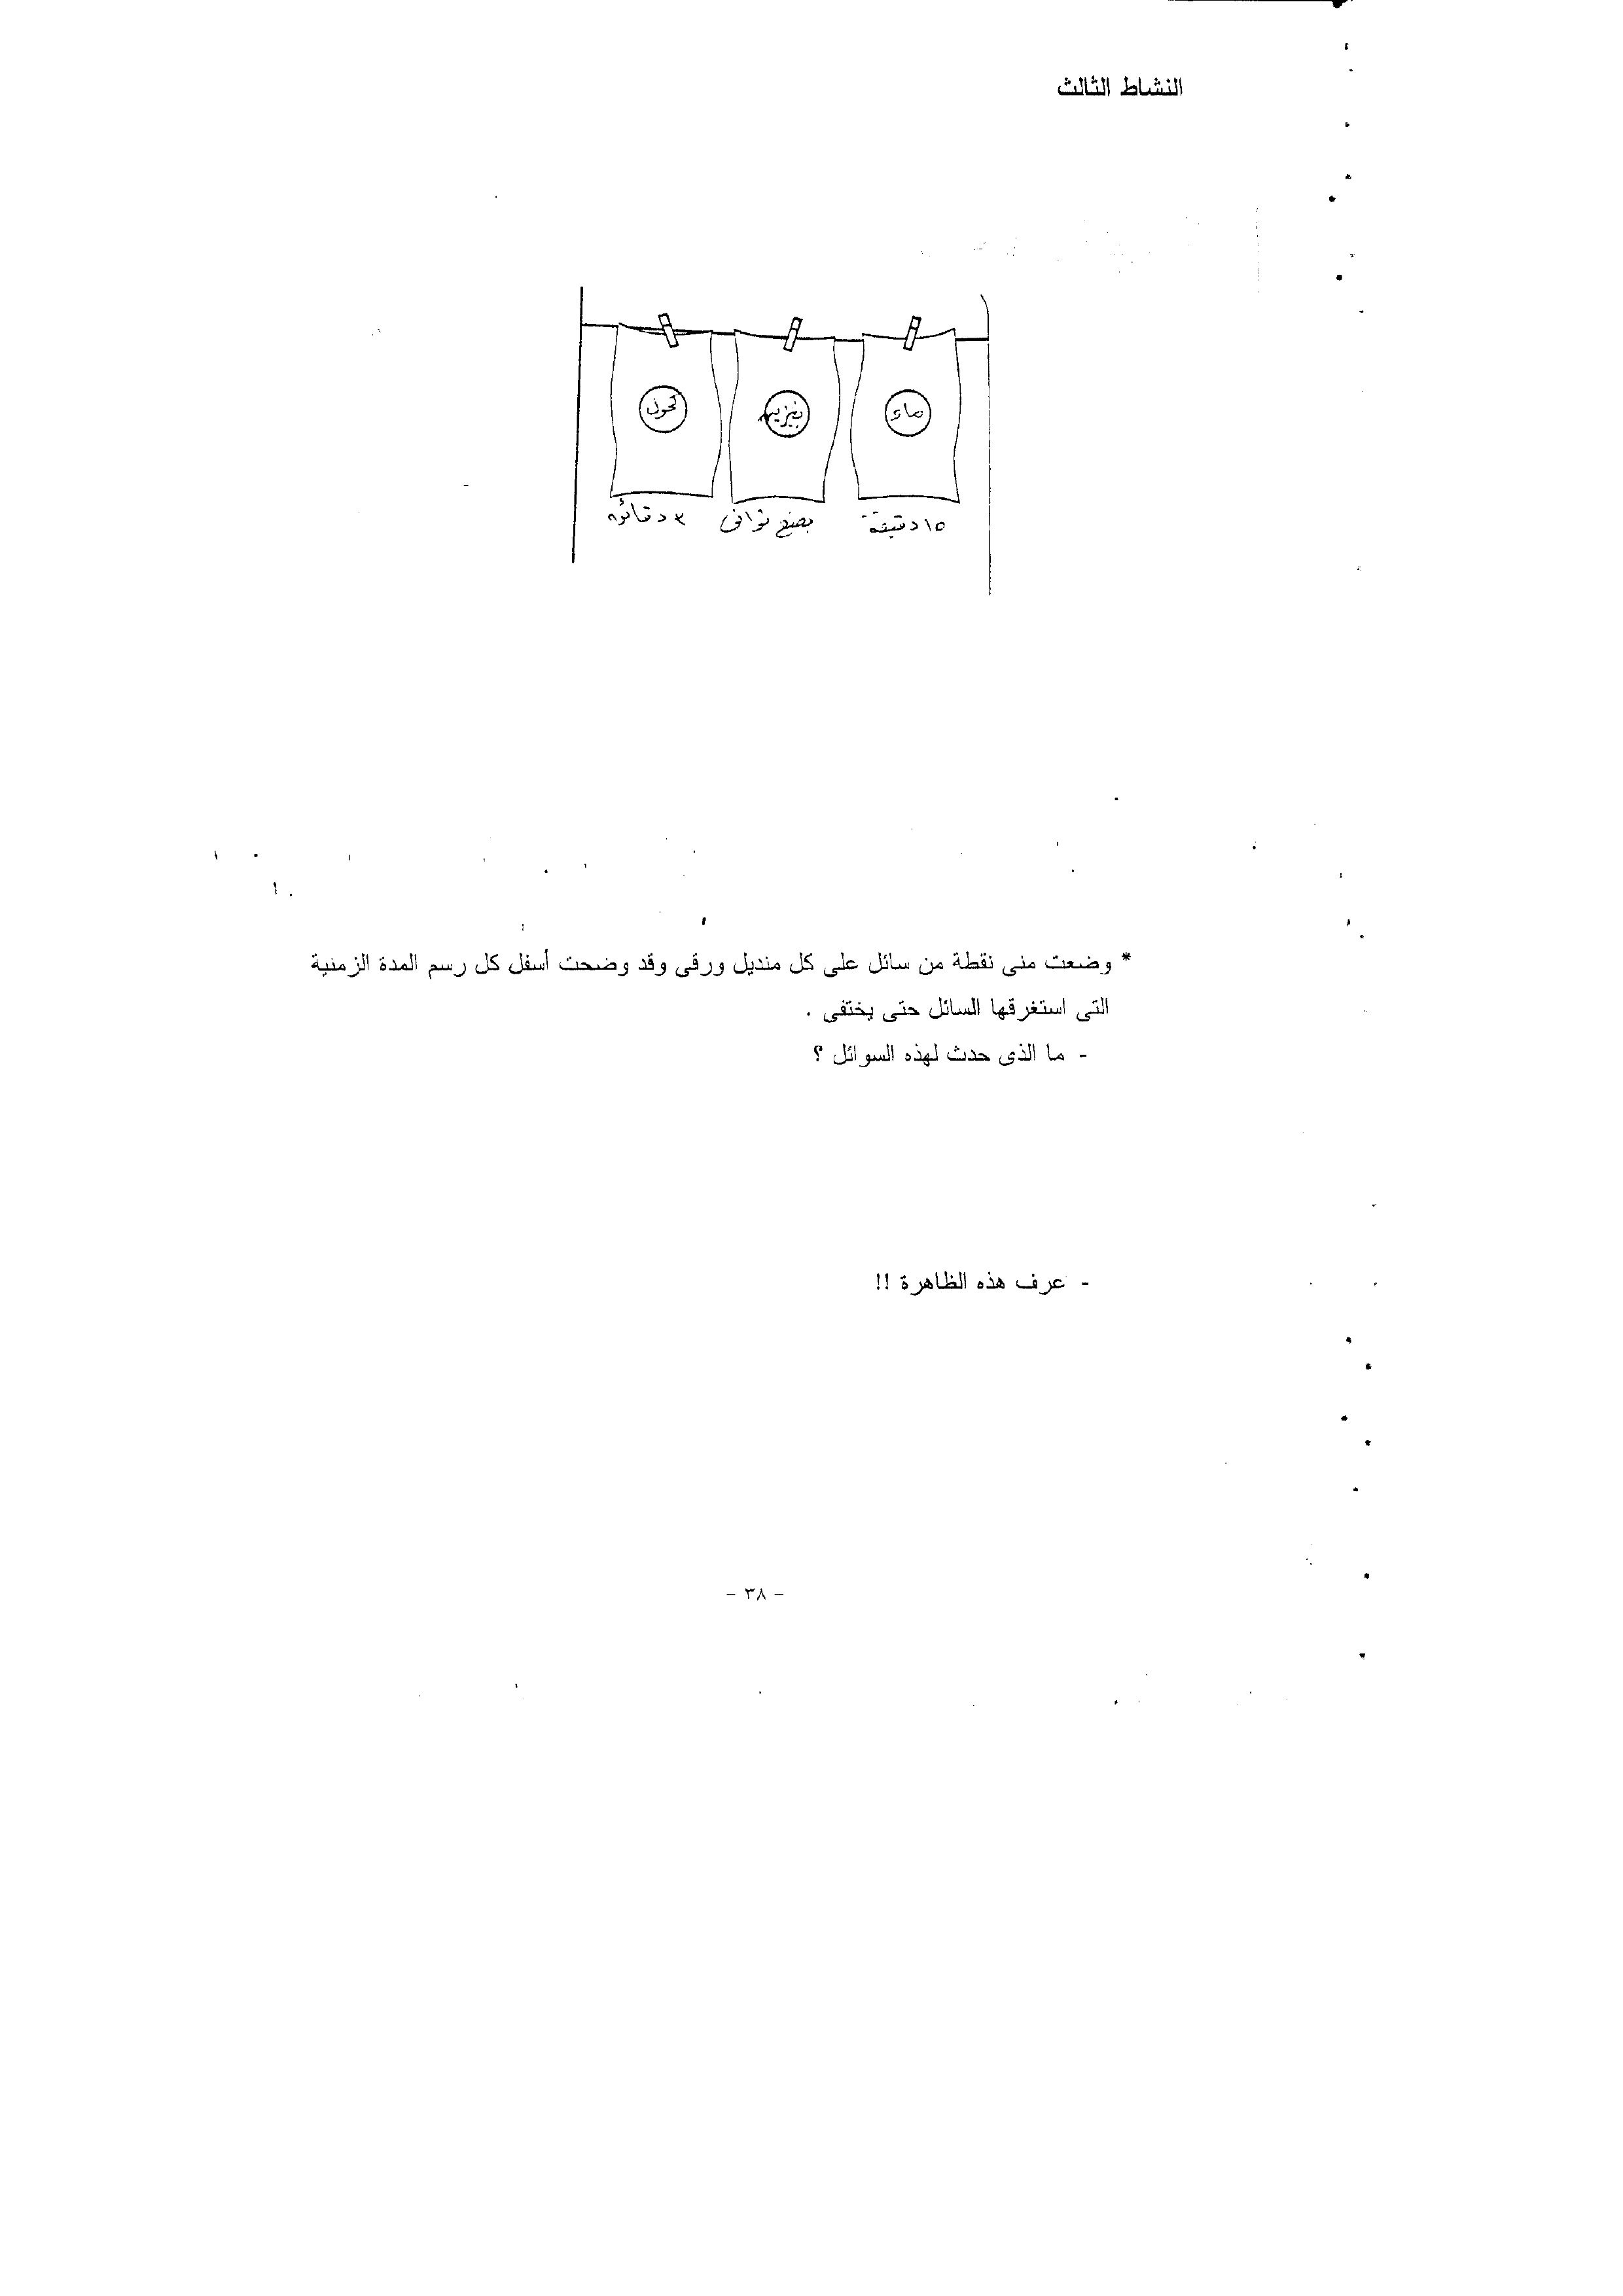 النشاط الثالث
ماء
بنزين
كحول
١٥ دقيقة
بضع ثوانى
٣ دقائق
* وضعت منى نقطة من سائل على كل منديل ورقى وقد وضحت أسفل كل رسم المدة الزمنية
التى استغرقها السائل حتى يختفى .
- ما الذى حدث لهذه السوائل ؟
- عرف هذه الظاهرة !!
- ٣٨ -